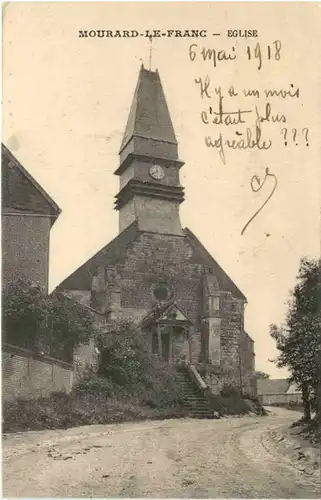 MOURARD-LE-FRANC — EGLISE
6 mai 1918
Il y a un mois
c'était plus
agréable ???